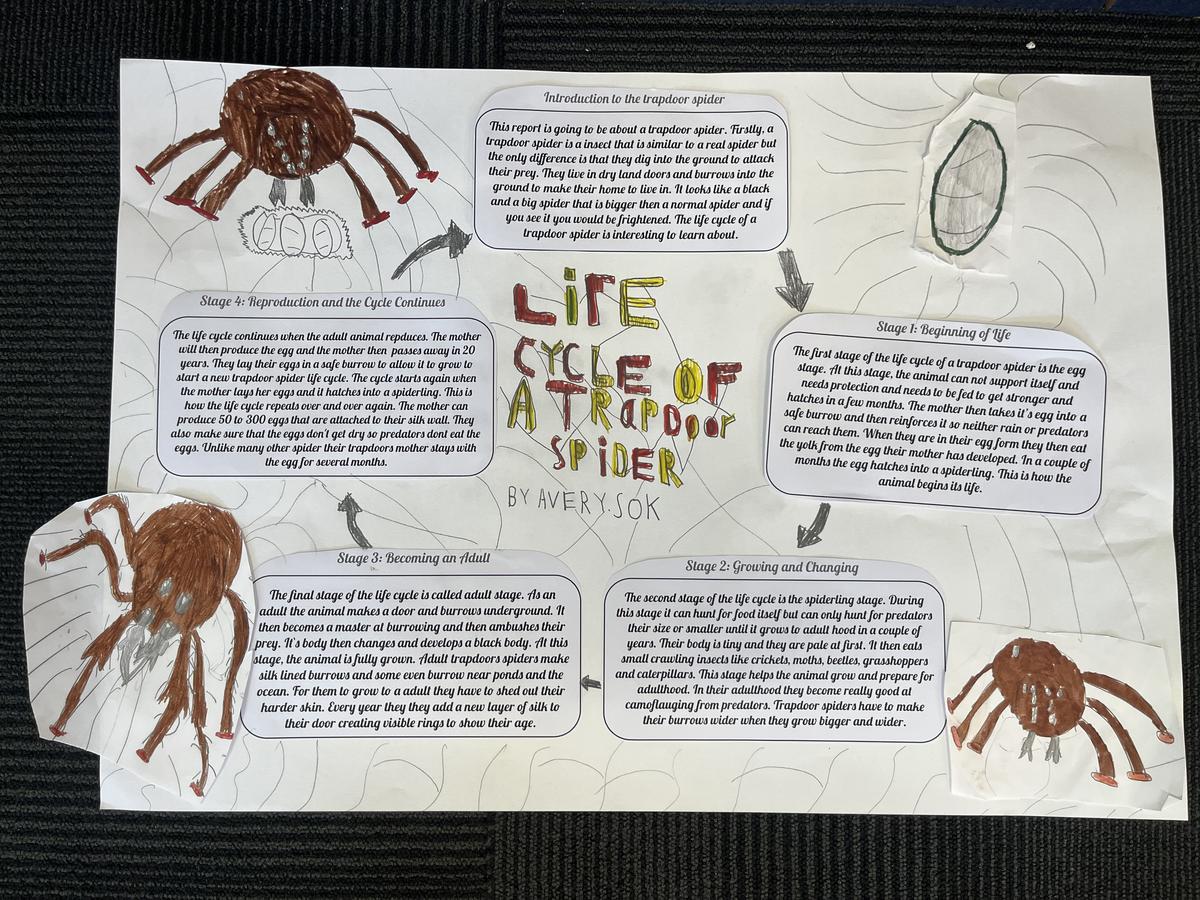 Introduction to the trapdoor spider
This report is going to be about a trapdoor spider. Firstly, a
trapdoor spider is a insect that is similar to a real spider but
the only difference is that they dig into the ground to attack
their prey. They live in dry land doors and burrows into the
ground to make their home to live in. It looks like a black
and a big spider that is bigger then a normal spider and if
you see it you would be frightened. The life cycle of a
trapdoor spider is interesting to learn about.
LiFE
CYCLE OF
A TRapDoor
SPiDER
BY AVERY.SOK
Stage 1: Beginning of Life
The first stage of the life cycle of a trapdoor spider is the egg
stage. At this stage, the animal can not support itself and
needs protection and needs to be fed to get stronger and
hatches in a few months. The mother then takes it's egg into a
safe burrow and then reinforces it so neither rain or predators
can reach them. When they are in their egg form they then eat
the yolk from the egg their mother has developed. In a couple of
months the egg hatches into a spiderling. This is how the
animal begins its life.
Stage 2: Growing and Changing
The second stage of the life cycle is the spiderling stage. During
this stage it can hunt for food itself but can only hunt for predators
their size or smaller until it grows to adult hood in a couple of
years. Their body is tiny and they are pale at first. It then eats
small crawling insects like crickets, moths, beetles, grasshoppers
and caterpillars. This stage helps the animal grow and prepare for
adulthood. In their adulthood they become really good at
camoflauging from predators. Trapdoor spiders have to make
their burrows wider when they grow bigger and wider.
Stage 3: Becoming an Adult
The final stage of the life cycle is called adult stage. As an
adult the animal makes a door and burrows underground. It
then becomes a master at burrowing and then ambushes their
prey. It's body then changes and develops a black body. At this
stage, the animal is fully grown. Adult trapdoors spiders make
silk lined burrows and some even burrow near ponds and the
ocean. For them to grow to a adult they have to shed out their
harder skin. Every year they they add a new layer of silk to
their door creating visible rings to show their age.
Stage 4: Reproduction and the Cycle Continues
The life cycle continues when the adult animal repduces. The mother
will then produce the egg and the mother then passes away in 20
years. They lay their eggs in a safe burrow to allow it to grow to
start a new trapdoor spider life cycle. The cycle starts again when
the mother lays her eggs and it hatches into a spiderling. This is
how the life cycle repeats over and over again. The mother can
produce 50 to 300 eggs that are attached to their silk wall. They
also make sure that the eggs don't get dry so predators dont eat the
eggs. Unlike many other spider their trapdoors mother stays with
the egg for several months.